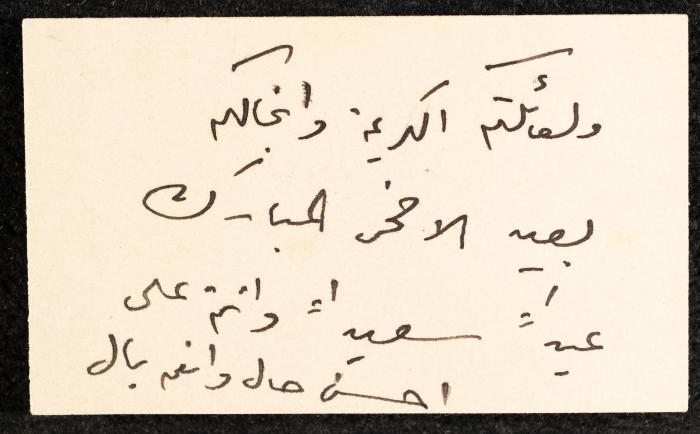 ولعائلتكم الكريمة وانجالكم
بعيد الاضحى المبارك
عيداً سعيداً وانتم على
احسن حال وانعم بال